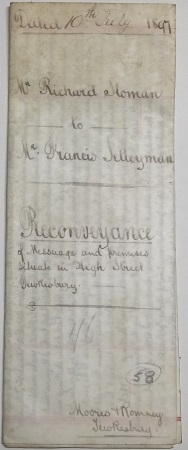 Dated 10th July 1897
Mr. Richard
to
Mr. Francis
Reconveyance
of Messuage and premises
situate in High Street
Tewkesbury
58
Moores & Romney
Tewkesbury